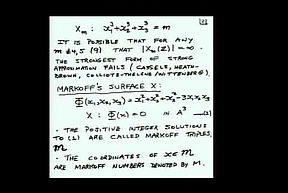 X_m : x_1^3 + x_2^3 + x_3^3 = m
IT IS POSSIBLE THAT FOR ANY
m ≢ 4,5 (9) THAT |X_m(Z)| = ∞.
THE STRONGEST FORM OF STRONG
APPROXIMATION FAILS (CASSELS, HEATH-
BROWN, COLLIOT-THELENE/WITTENBERG).
MARKOFF'S SURFACE X:
Φ(x_1, x_2, x_3) = x_1^2 + x_2^2 + x_3^2 - 3x_1 x_2 x_3
X : Φ(x) = 0 IN A^3
• THE POSITIVE INTEGER SOLUTIONS
TO ARE CALLED MARKOFF TRIPLES,
M
• THE COORDINATES OF x ∈ M
ARE MARKOFF NUMBERS DENOTED BY M.